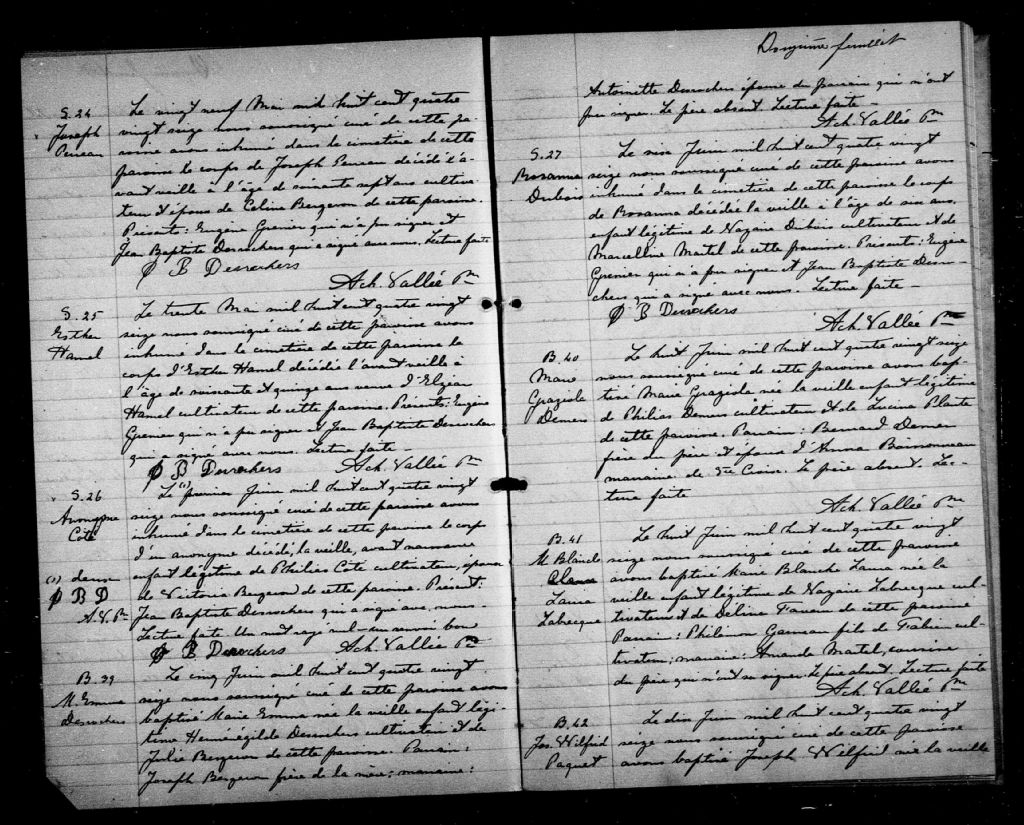 S. 24
Joseph
Perreau
Le vingt neuf Mai mil huit cent quatre
vingt seize nous soussigné curé de cette pa-
roisse avons inhumé dans le cimetière de cette
paroisse le corps de Joseph décédé l'a-
vant veille à l'âge de soixante sept ans cultiva-
teur et époux de Celina Bergeron de cette paroisse.
Présents: Eugène Grenier qui n'a pu signer et
Jean Baptiste Desrochers qui a signé avec nous. Lecture faite
J B Desrochers
Ach. Vallée Ptre
S. 25
Esther
Hamel
Le trente Mai mil huit cent quatre vingt
seize nous soussigné curé de cette paroisse avons
inhumé dans le cimetière de cette paroisse le
corps d'Esther Hamel décédée l'avant veille à
l'âge de soixante et quinze ans veuve d'Elzéar
Hamel cultivateur de cette paroisse. Présents: Eugène
Grenier qui n'a pu signer et Jean Baptiste Desrochers
qui a signé avec nous. Lecture faite
J B Desrochers Ach. Vallée Ptre
S. 26
Anonyme
Coté
(1) deux
J B D
A. V. Ptre
Le (1) premier Juin mil huit cent quatre vingt
seize nous soussigné curé de cette paroisse avons
inhumé dans le cimetière de cette paroisse le corps
d'un anonyme décédé, la veille, avant naissance
enfant légitime de Philias Coté cultivateur, époux
de Victoria Bergeron de cette paroisse. Présent:
Jean Baptiste Desrochers qui a signé avec nous.
Lecture faite Un mot rayé nul un renvoi bon
J B Desrochers Ach. Vallée Ptre
B. 39
M. Emma
Desrochers
Le cinq Juin mil huit cent quatre vingt
seize nous soussigné curé de cette paroisse avons
baptisé Marie Emma née la veille enfant légi-
time Herménégilde Desrochers cultivateur et de
Julie Bergeron de cette paroisse. Parrain:
Joseph Bergeron frère de la mère; marraine:
Douzième feuillet
Antoinette Desrochers épouse du parrain qui n'ont
pu signer. Le père absent. Lecture faite
Ach. Vallée Ptre
S. 27
Rosanna
Dubois
Le six Juin mil huit cent quatre vingt
seize nous soussigné curé de cette paroisse avons
inhumé dans le cimetière de cette paroisse le corps
de Rosanna décédée la veille à l'âge de six ans,
enfant légitime de Nazaire Dubois cultivateur et de
Marcelline Martel de cette paroisse. Présents: Eugène
Grenier qui n'a pu signer et Jean Baptiste Desro-
chers qui a signé avec nous. Lecture faite
J B Desrochers
Ach. Vallée Ptre
B. 40
Marie
Graziela
Demers
Le huit Juin mil huit cent quatre vingt seize
nous soussigné curé de cette paroisse avons bap-
tisé Marie Graziela née la veille enfant légitime
de Philias Demers cultivateur et de Lucina Plante
de cette paroisse. Parrain: Bernard Demers
frère du père et époux d'Anna Boissonneau
marraine, de Ste Croix. Le père absent. Lec-
ture faite
Ach. Vallée Ptre
B. 41
M Blanche
Laura
Labrecque
Le huit Juin mil huit cent quatre vingt
seize nous soussigné curé de cette paroisse
avons baptisé Marie Blanche Laura née la
veille enfant légitime de Nazaire Labrecque cul-
tivateur et de Délina de cette paroisse
Parrain: Philémon Garneau fils de Fabien cul-
tivateur; marraine: Amanda Matel, cousine
du père qui n'ont su signer. Le père absent. Lecture faite
Ach. Vallée Ptre
B. 42
Jos. Wilfrid
Paquet
Le dix Juin mil huit cent quatre vingt
seize nous soussigné curé de cette paroisse
avons baptisé Joseph Wilfrid né la veille